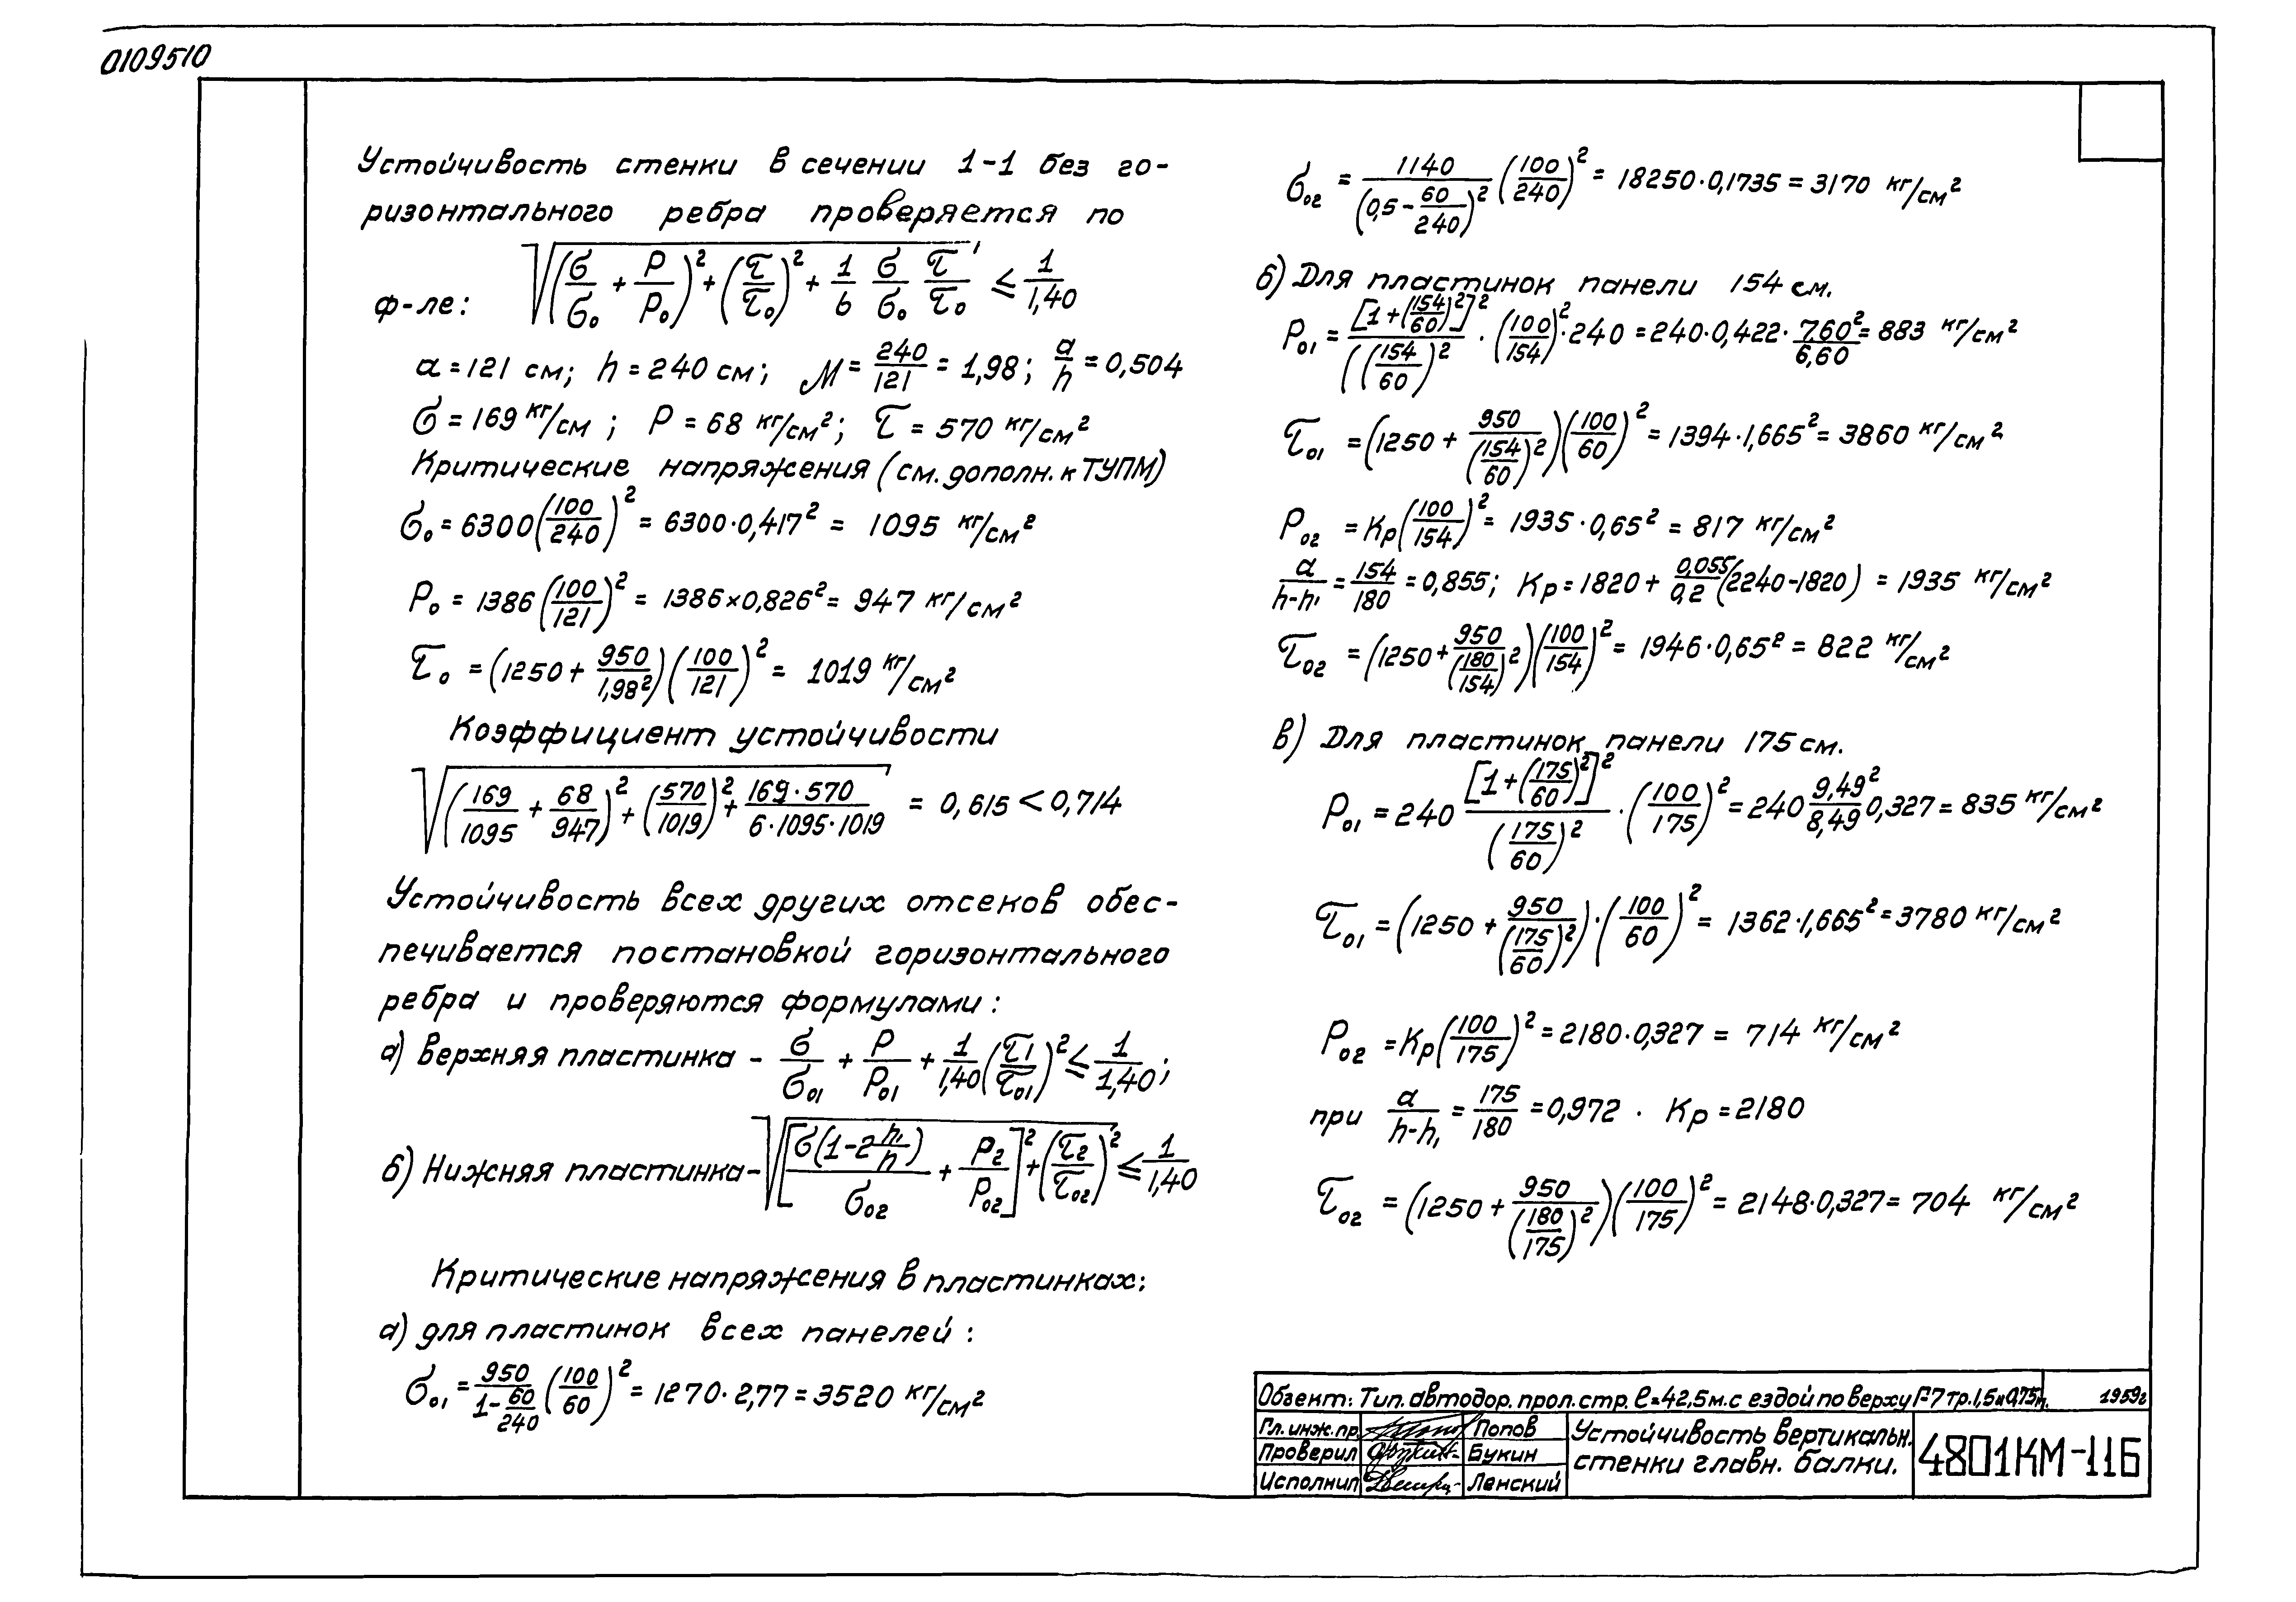 0109510
Устойчивость стенки в сечении 1-1 без го-
ризонтального ребра проверяется по
ф-ле: √((σ/σ₀ + P/P₀)² + (τ/τ₀)² + 1/6 σ/σ₀ τ/τ₀) ≤ 1/1,40
a = 121 см; h = 240 см; M = 240/121 = 1,98; a/h = 0,504
σ = 169 кг/см; P = 68 кг/см²; τ = 570 кг/см²
Критические напряжения (см. дополн. к ТУПМ)
σ₀ = 6300(100/240)² = 6300·0,417² = 1095 кг/см²
P₀ = 1386(100/121)² = 1386×0,826² = 947 кг/см²
τ₀ = (1250 + 950/1,98²)(100/121)² = 1019 кг/см²
Коэффициент устойчивости
√((169/1095 + 68/947)² + (570/1019)² + 169·570/6·1095·1019) = 0,615 < 0,714
Устойчивость всех других отсеков обес-
печивается постановкой горизонтального
ребра и проверяются формулами:
а) верхняя пластинка - σ/σ₀₁ + P/P₀₁ + 1/1,40(τ₁/τ₀₁)² ≤ 1/1,40;
б) Нижняя пластинка - √([σ(1-2 h₁/h)/σ₀₂ + P₂/P₀₂]² + (τ₂/τ₀₂)²) ≤ 1/1,40
Критические напряжения в пластинках:
а) для пластинок всех панелей:
σ₀₁ = 950/(1-60/240) (100/60)² = 1270·2,77 = 3520 кг/см²
σ₀₂ = 1140/(0,5-60/240)² (100/240)² = 18250·0,1735 = 3170 кг/см²
б) Для пластинок панели 154 см.
P₀₁ = [1+(154/60)²]²/((154/60)² · (100/154)²·240 = 240·0,422·7,60²/6,60 = 883 кг/см²
τ₀₁ = (1250 + 950/(154/60)²)(100/60)² = 1394·1,665² = 3860 кг/см²
P₀₂ = Kр(100/154)² = 1935·0,65² = 817 кг/см²
a/h-h₁ = 154/180 = 0,855; Kр = 1820 + 0,055/0,2(2240-1820) = 1935 кг/см²
τ₀₂ = (1250 + 950/(180/154)²)(100/154)² = 1946·0,65² = 822 кг/см²
в) Для пластинок панели 175 см.
P₀₁ = 240 [1+(175/60)²]²/(175/60)² · (100/175)² = 240 9,49²/8,49 0,327 = 835 кг/см²
τ₀₁ = (1250 + 950/(175/60)²)·(100/60)² = 1362·1,665² = 3780 кг/см²
P₀₂ = Kр(100/175)² = 2180·0,327 = 714 кг/см²
при a/h-h₁ = 175/180 = 0,972 . Kр = 2180
τ₀₂ = (1250 + 950/(180/175)²)(100/175)² = 2148·0,327 = 704 кг/см²
Обзект: Тип. автодор. прол. стр. ℓ=42,5м. с ездой по верху Г-7 тр. 1,5и0,75м. 1959г
Гл. инж. пр. Попов
Проверил Букин
Исполнил Ленский
Устойчивость вертикальн.
стенки главн. балки.
4801КМ-116